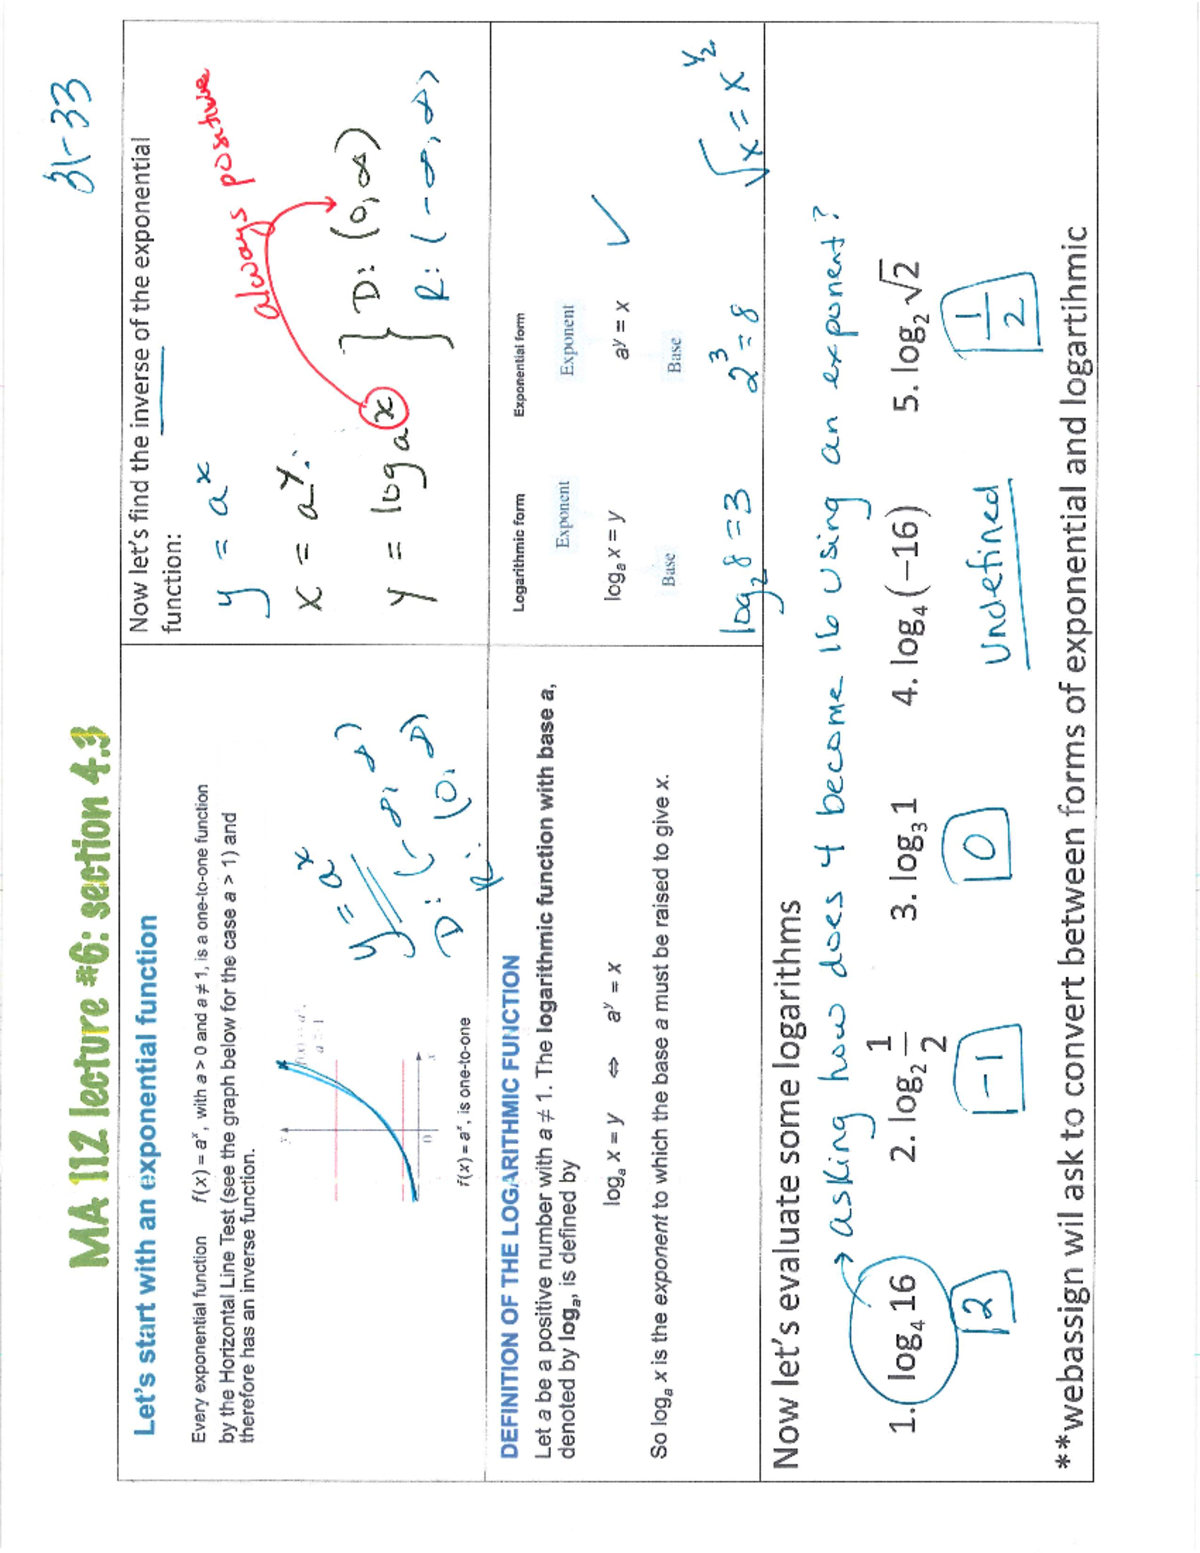 31-33
MA 112 lecture #6: section 4.3
Let's start with an exponential function
Every exponential function f(x) = aˣ, with a > 0 and a ≠ 1, is a one-to-one function
by the Horizontal Line Test (see the graph below for the case a > 1) and
therefore has an inverse function.
y
f(x) = aˣ,
a > 1
0
x
f(x) = aˣ, is one-to-one
y = aˣ
D: (-∞, ∞)
R: (0, ∞)
Now let's find the inverse of the exponential
function:
y = aˣ
always positive
x = aʸ
y = logₐ x
D: (0, ∞)
R: (-∞, ∞)
DEFINITION OF THE LOGARITHMIC FUNCTION
Let a be a positive number with a ≠ 1. The logarithmic function with base a,
denoted by logₐ, is defined by
logₐ x = y ⇔ aʸ = x
So logₐ x is the exponent to which the base a must be raised to give x.
Logarithmic form Exponential form
Exponent Exponent
logₐ x = y aʸ = x ✓
Base Base
log₂ 8 = 3 2³ = 8 √x = x^1/2
Now let's evaluate some logarithms
→ asking how does 4 become 16 using an exponent?
1. log₄ 16 2. log₂ 1/2 3. log₃ 1 4. log₄(−16) 5. log₂ √2
2 -1 0 Undefined 1/2
**webassign wil ask to convert between forms of exponential and logartihmic